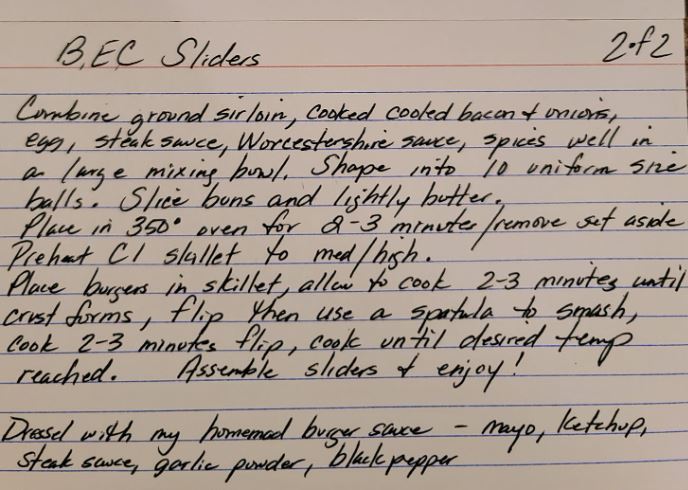 B,E,C Sliders 2 of 2
Combine ground sirloin, cooked cooled bacon & onions,
egg, steak sauce, Worcestershire sauce, spices well in
a large mixing bowl. Shape into 10 uniform size
balls. Slice buns and lightly butter.
Place in 350° oven for 2-3 minutes/remove set aside
Preheat CI skillet to med/high.
Place burgers in skillet, allow to cook 2-3 minutes until
crust forms, flip then use a spatula to smash,
cook 2-3 minutes flip, cook until desired temp
reached. Assemble sliders & enjoy!
Dressed with my homemad burger sauce - mayo, ketchup,
steak sauce, garlic powder, black pepper